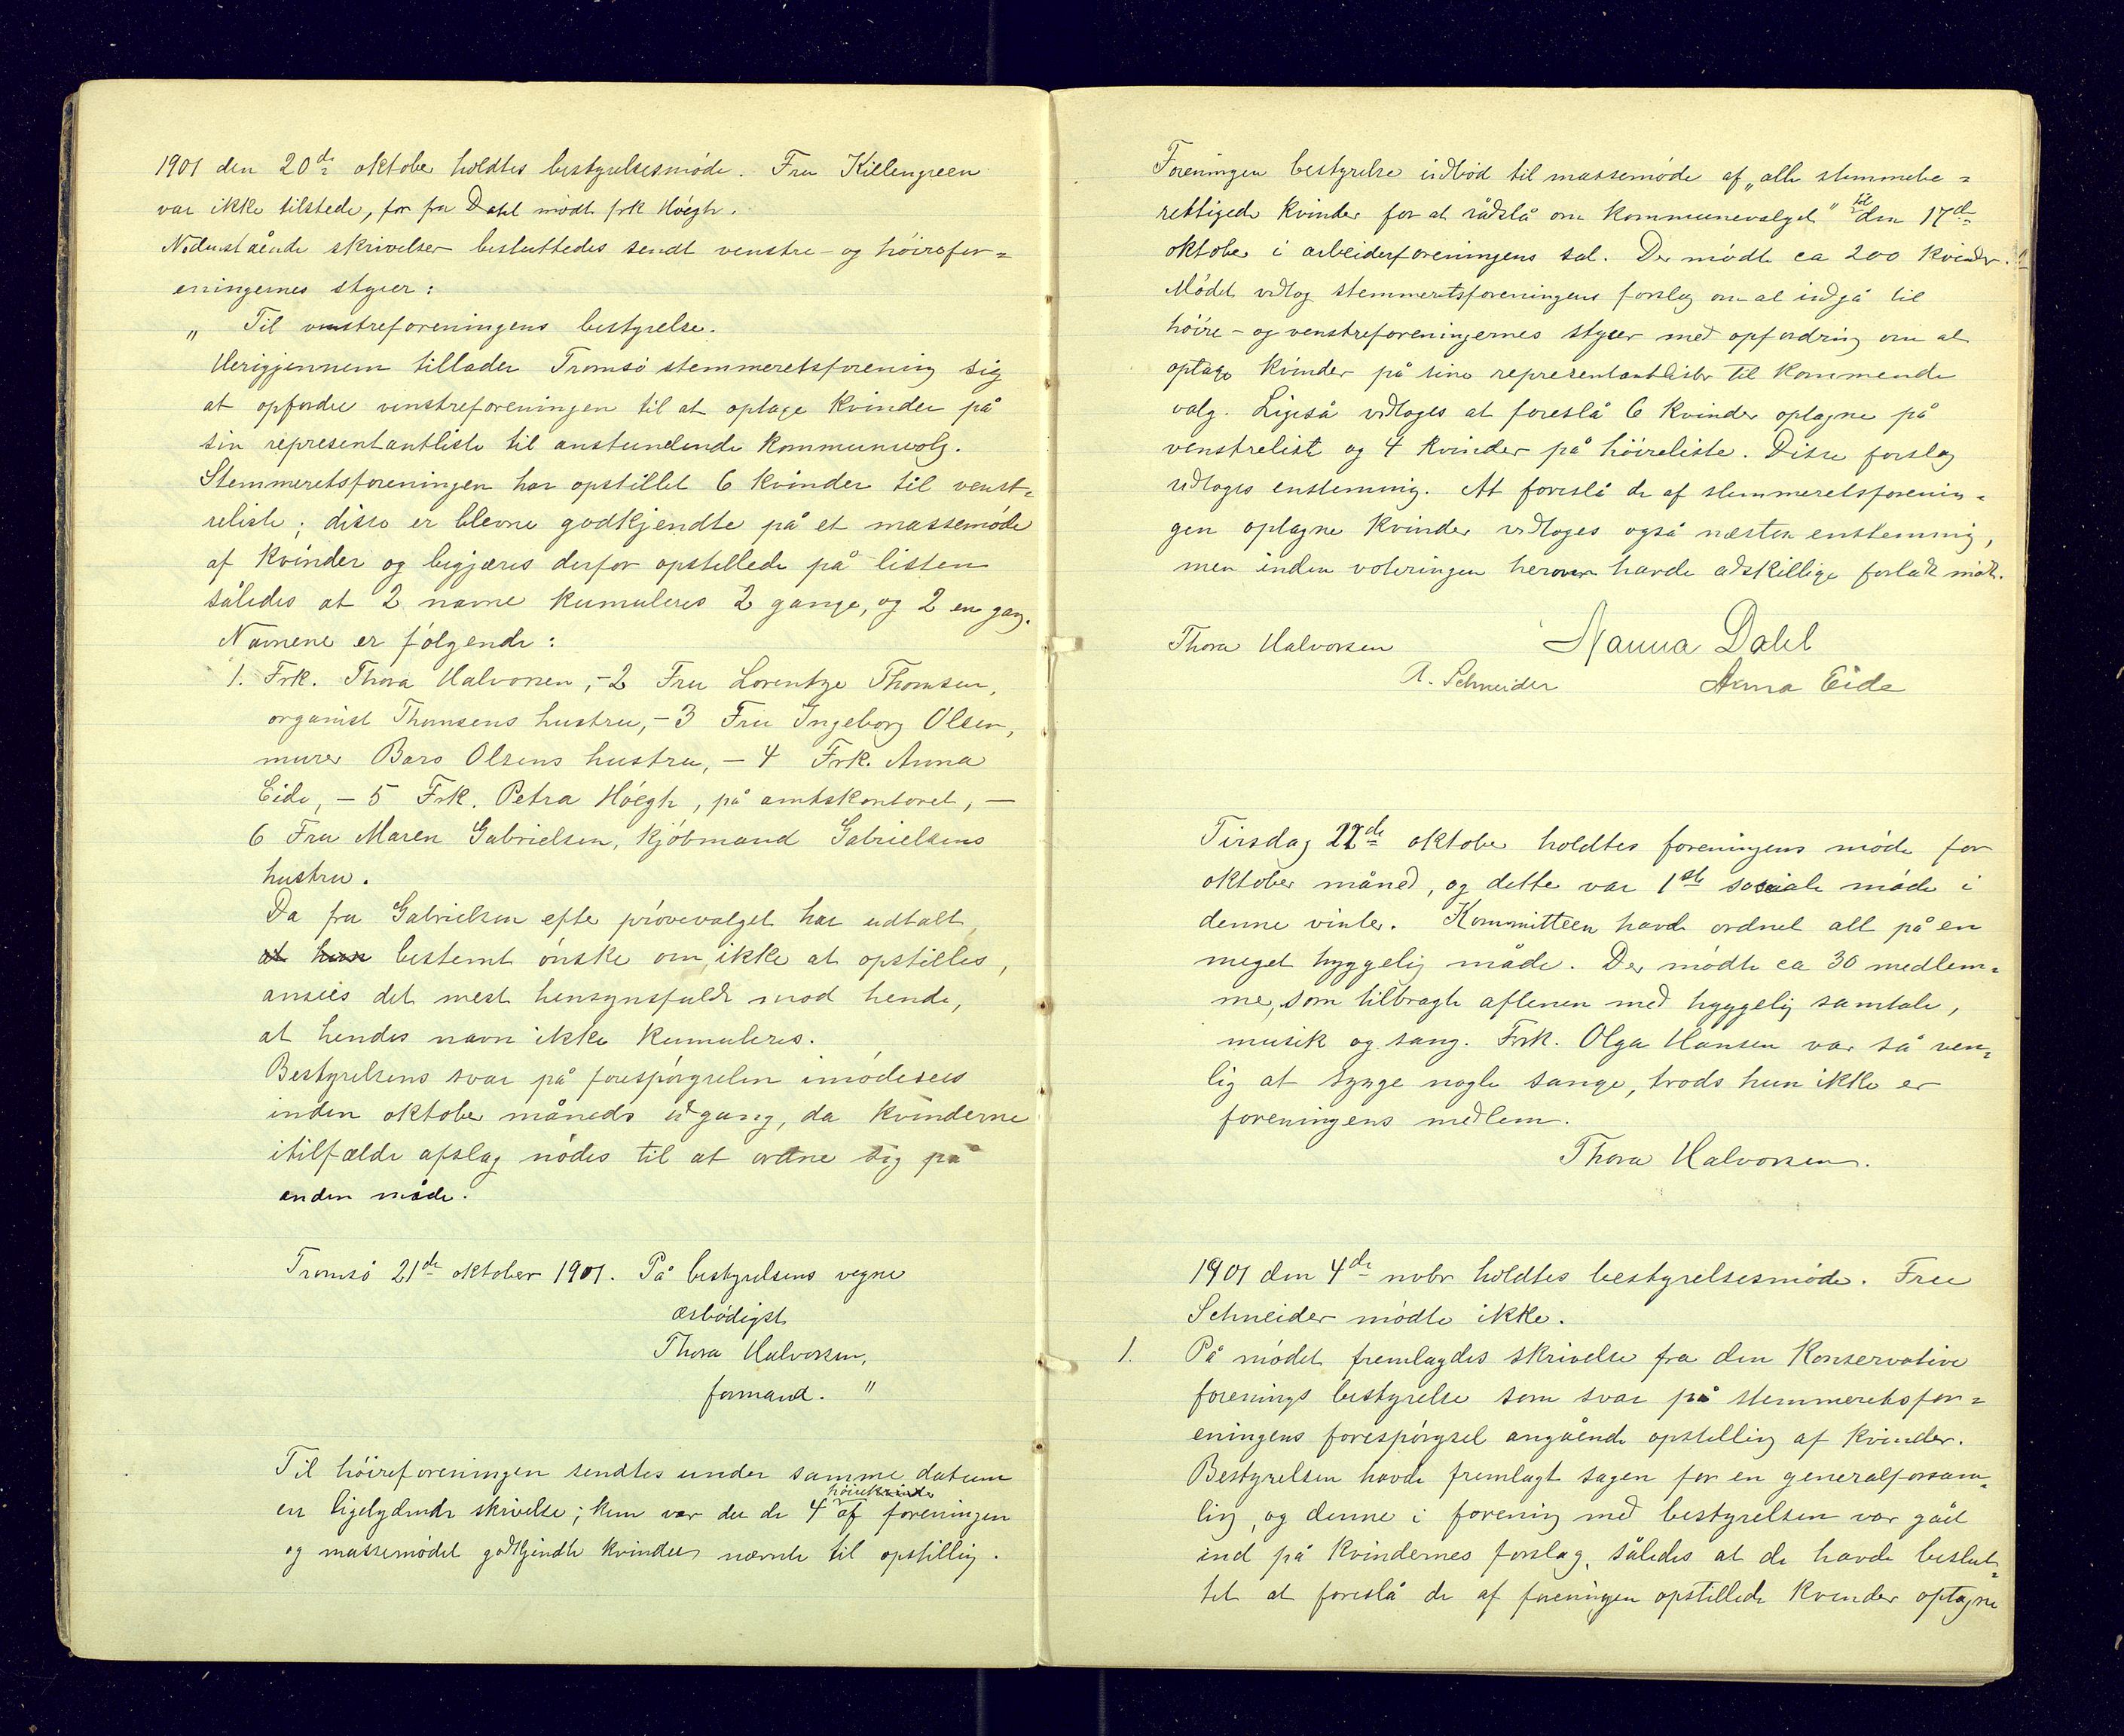 1901 den 20de oktober holdtes bestyrelsesmøde. Fru Killengreen
var ikke tilstede, for fru Dahl mødte frk Høegh.
Nedenstående skrivelser besluttedes sendt venstre- og høirefor=
eningernes styrer:
„ Til venstreforeningens bestyrelse.
Herigjennem tillader Tromsø stemmeretsforening sig
at opfordre venstreforeningen til at optage kvinder på
sin representantliste til anstundende kommunevalg.
Stemmeretsforeningen har opstillet 6 kvinder til venst=
reliste; disse er blevne godkjendte på et massemøde
af kvinder og begjæres derfor opstillede på listen
således at 2 navne kumuleres 2 gange, og 2 en gang.
Navnene er følgende:
1. Frk. Thora Halvorsen, - 2 Fru Lorentze Thomsen,
organist Thomsens hustru, - 3 Fru Ingeborg Olsen,
murer Baro Olsens hustru, - 4 Frk. Anna
Eide, - 5 Frk. Petra Høegh, på amtskontoret, —
6 Fru Maren Gabrielsen, kjøbmand Gabrielsens
hustru.
Da fru Gabrielsen efter prøvevalget har udtalt
at hun bestemt ønske om, ikke at opstilles,
ansees det mest hensynsfuldt mod hende,
at hendes navn ikke kumuleres.
Bestyrelsens svar på forespørgselen imødesees
inden oktober måneds udgang, da kvinderne
itilfælde afslag nødes til at ordne sig på
anden måde.
Tromsø 21de oktober 1901. På bestyrelsens vegne
ærbødigst
Thora Halvorsen,
formand. "
Til høireforeningen sendtes under samme datum
høirekvinder
en ligelydende skrivelse; kun var der de 4 af foreningen
og massemødet godkjendte kvinder nævnte til opstilling.
Foreningen bestyrelse indbød til massemøde af „alle stemmebe=
rettigede kvinder for at rådslå om kommunevalget" til den 17de
oktober i arbeiderforeningens sal. Der mødte ca 200 kvinder.
Mødet vedtog stemmeretsforeningens forslag om at indgå til
høire- og venstreforeningernes styrer med opfordring om at
optage kvinder på sine representantlister til kommende
valg. Ligeså vedtoges at foreslå 6 kvinder optagne på
venstrelist og 4 kvinder på høireliste. Disse forslag
vedtoges enstemmig. At foreslå de af stemmeretsforenin=
gen optagne kvinder vedtoges også næsten enstemmig,
men inden voteringen herover havde adskillige forladt mødt.
Thora Halvorsen Nanna Dahl
A. Schneider Anna Eide
Tirsdag 22de oktober holdtes foreningens møde for
oktober måned, og dette var 1ste sociale møde i
denne vinter. Kommitteen havde ordnet alt på en
meget hyggelig måde. Der mødte ca 30 medlem=
mer, som tilbragte aftenen med hyggelig samtale,
musik og sang. Frk. Olga Hansen var så ven=
lig at synge nogle sange, trods hun ikke er
foreningens medlem.
Thora Halvorsen.
1901 den 4de nobr holdtes bestyrelsesmøde. Fru
Schneider mødte ikke.
1. På mødet fremlagdes skrivelse fra den konservative
forenings bestyrelse som svar på stemmeretsfor=
eningens forespørgsel angående opstilling af kvinder.
Bestyrelsen havde fremlagt sagen for en generalforsam=
ling, og denne i forening med bestyrelsen var gået
ind på kvindernes forslag, således at de havde beslut=
tet at foreslå de af foreningen opstillede kvinder optagne